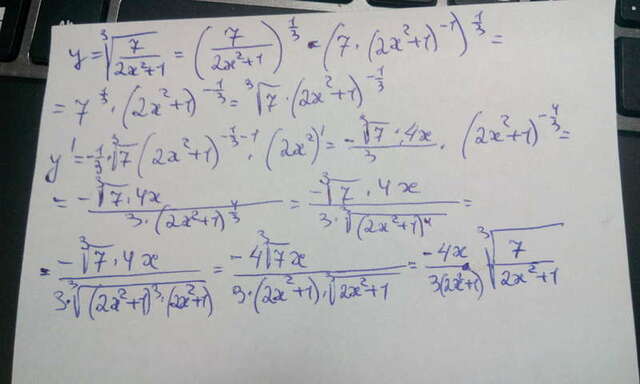 y = ∛(7/(2x²+1)) = (7/(2x²+1))^(1/3) = (7·(2x²+1)^(-1))^(1/3) =
= 7^(1/3)·(2x²+1)^(-1/3) = ∛7·(2x²+1)^(-1/3)
y' = -1/3·∛7(2x²+1)^(-1/3-1)·(2x²)' = (-∛7·4x)/3·(2x²+1)^(-4/3) =
= (-∛7·4x)/(3·(2x²+1)^(4/3)) = (-∛7·4x)/(3·∛((2x²+1)⁴)) =
= (-∛7·4x)/(3·∛((2x²+1)³·(2x²+1))) = (-4∛7x)/(3·(2x²+1)·∛(2x²+1)) = (-4x)/(3(2x²+1)) ∛(7/(2x²+1))